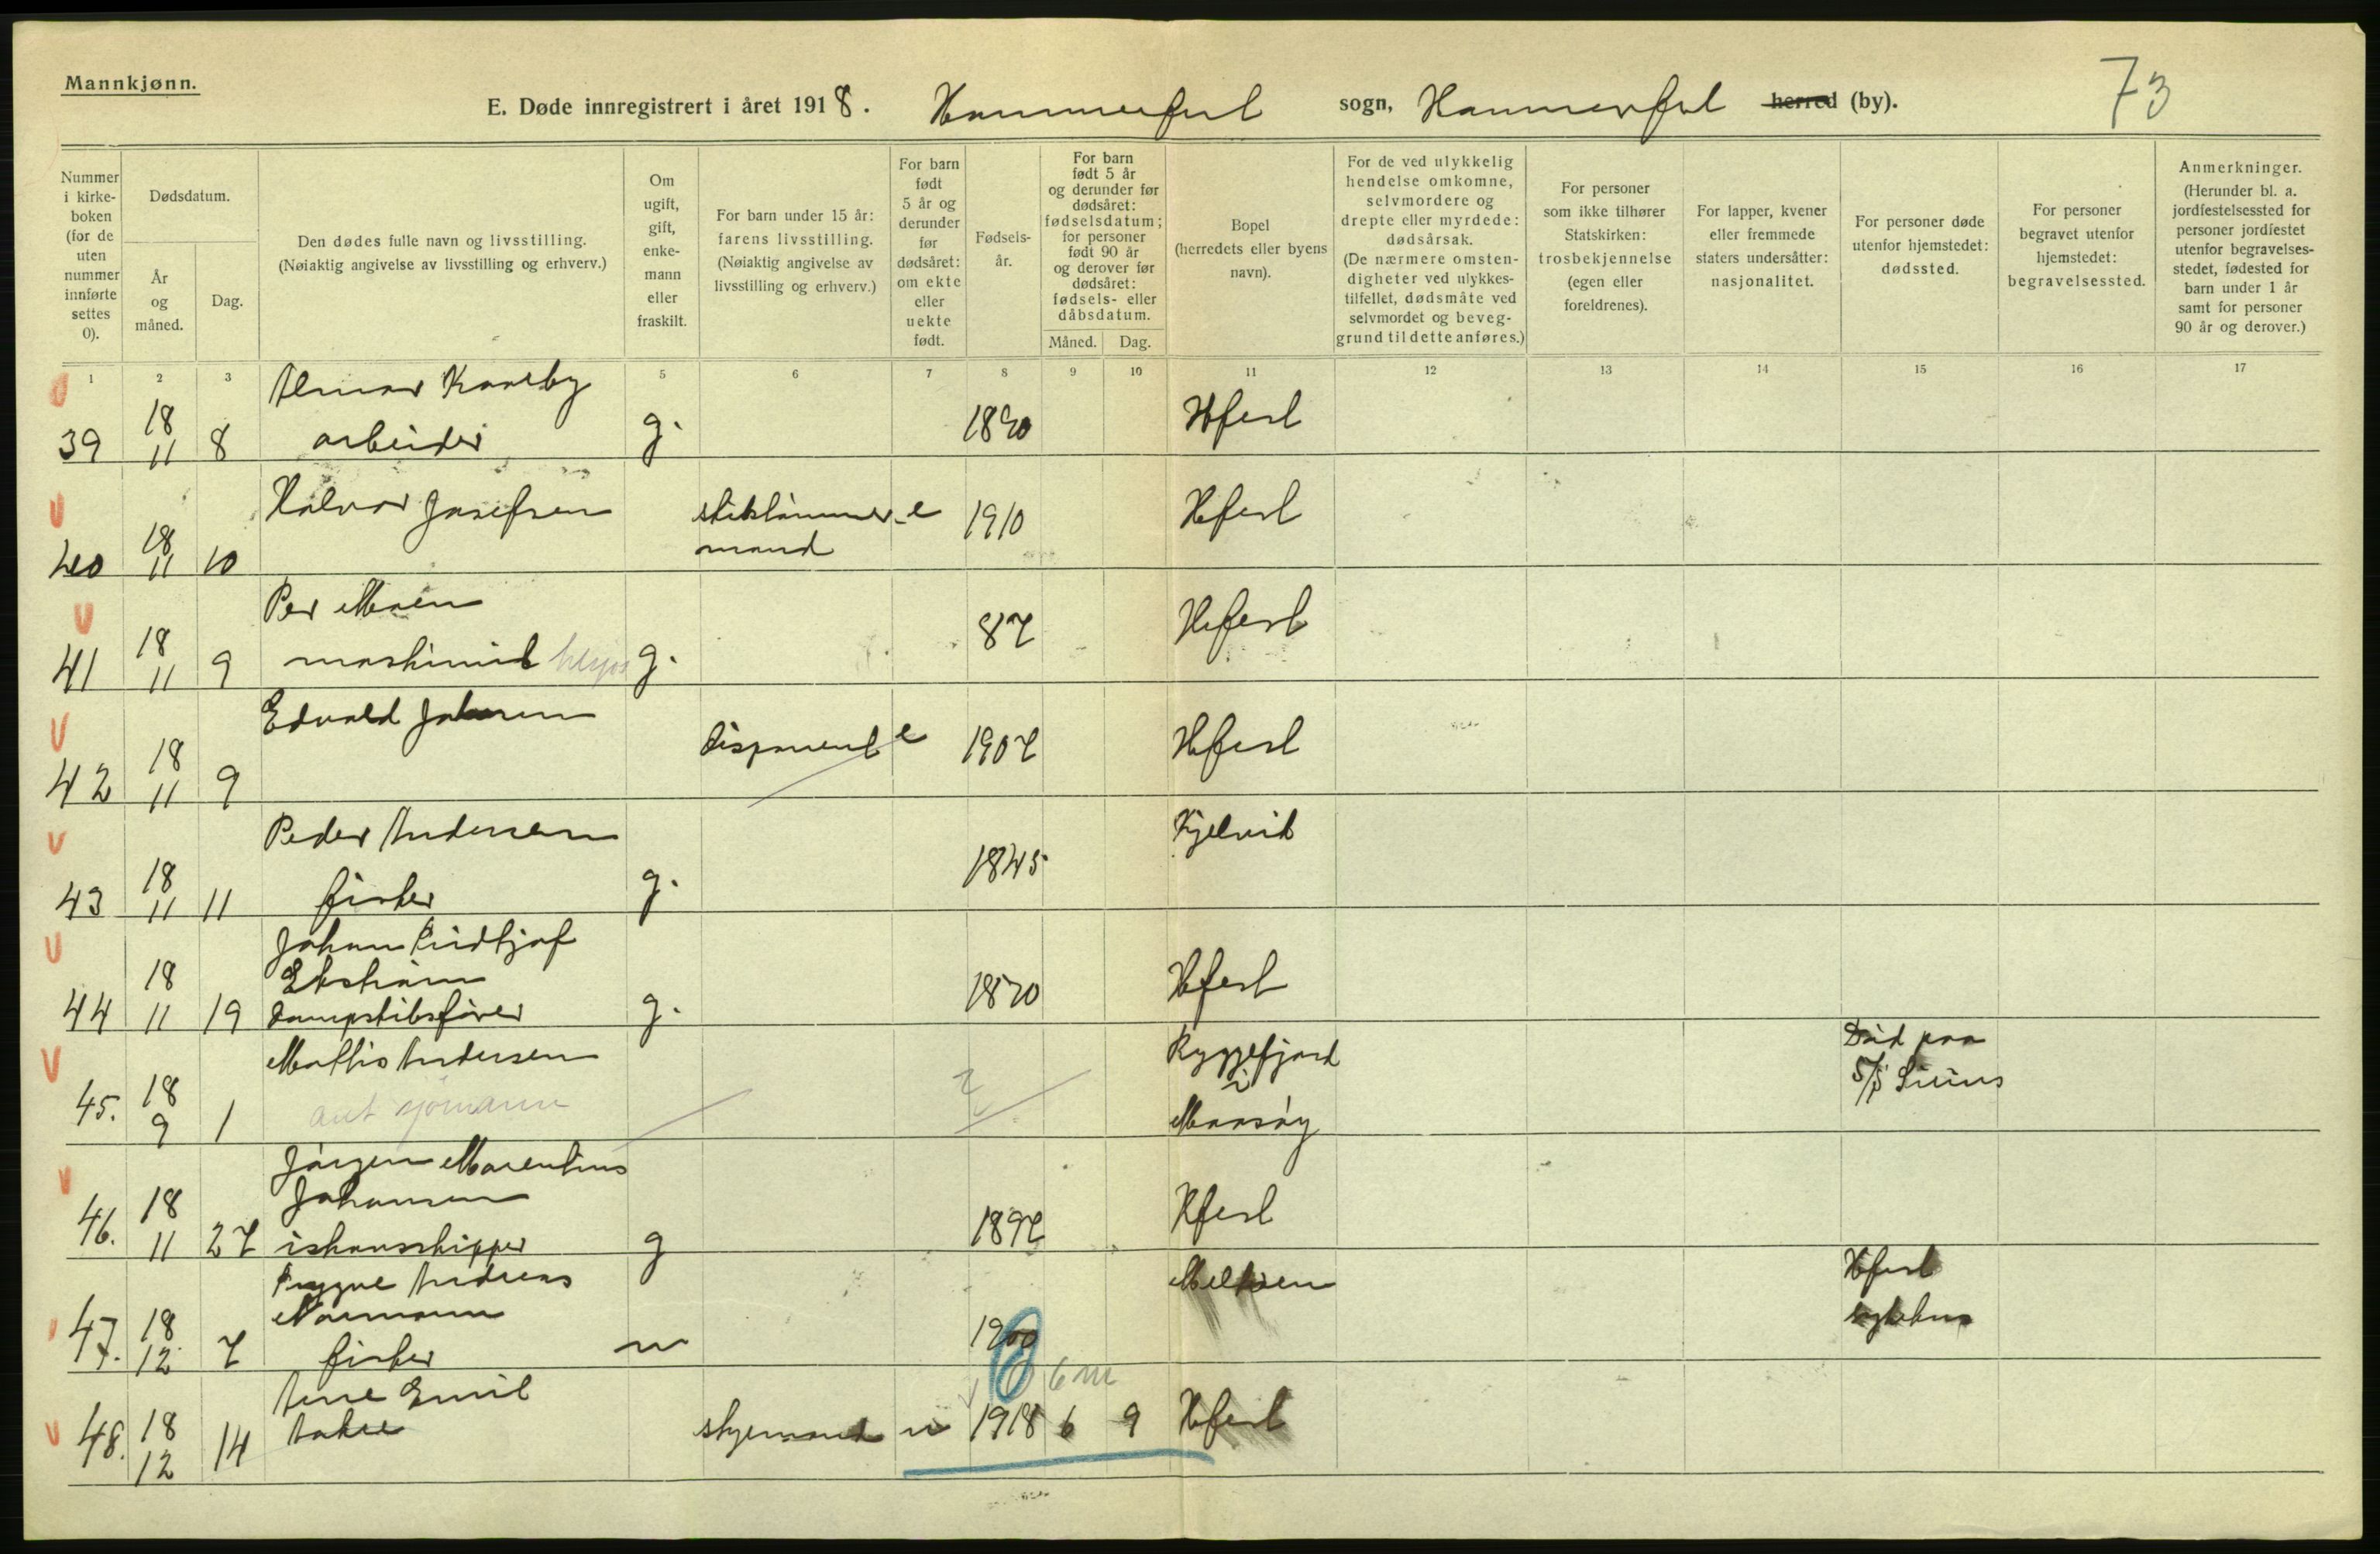 Mannkjønn.
E. Døde innregistrert i året 1918. Hammerfest sogn, Hammerfest herred (by). 73
Nummer i kirkeboken (for de uten nummer innførte settes 0).
Dødsdatum.
År og måned.
Dag.
Den dødes fulle navn og livsstilling.
(Nøiaktig angivelse av livsstilling og erhverv.)
Om ugift, gift, enkemann eller fraskilt.
For barn under 15 år: farens livsstilling.
(Nøiaktig angivelse av livsstilling og erhverv.)
For barn født 5 år og derunder før dødsåret: om ekte eller uekte født.
Fødselsår.
For barn født 5 år og derunder før dødsåret: fødselsdatum; for personer født 90 år og derover før dødsåret: fødsels- eller dåbsdatum.
Måned.
Dag.
Bopel
(herredets eller byens navn).
For de ved ulykkelig hendelse omkomne, selvmordere og drepte eller myrdede: dødsårsak.
(De nærmere omstendigheter ved ulykkestilfellet, dødsmåte ved selvmordet og beveggrund til dette anføres.)
For personer som ikke tilhører Statskirken: trosbekjennelse (egen eller foreldrenes).
For lapper, kvener eller fremmede staters undersåtter: nasjonalitet.
For personer døde utenfor hjemstedet: dødssted.
For personer begravet utenfor hjemstedet: begravelsessted.
Anmerkninger.
(Herunder bl. a. jordfestelsessted for personer jordfestet utenfor begravelsesstedet, fødested for barn under 1 år samt for personer 90 år og derover.)
1 2 3 5 6 7 8 9 10 11 12 13 14 15 16 17
39 18 11 8 Kaarby
arbeider g. 1890 Hfest
40 18 11 10 Halvor Josefsen e 1910 Hfest
mand
41 18 11 9 Per Moen
maskinist g. 87 Hfest
42 18 11 9 Edvald Johnsen disponent e 1907 Hfest
43 18 11 11 Peder Andersen
fisker g. 1845 Kjelvik
44 18 11 19 Johan Fridtjof
Ekstrøm
dampskibsfører g. 1870 Hfest
45. 18 9 1 Mathis Andersen
ant sjømann
Ryggefjord
i
Maasøy
Død paa
S/S Sirius
46. 18 11 27 Jørgen Marentius
Johansen
ishavsskipper g 1897 Hfest
47. 18 12 7 Trygve Andreas
Normann
fisker u 1900 Melkøen
Hfest
sykehus
6 m
48. 18 12 14 Arne Emil
skyemand u 1918 6 9 Hfest